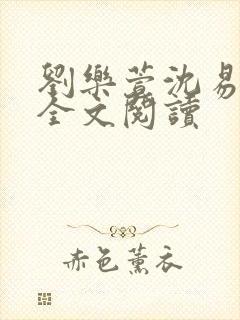 劉樂萱沈易
全文閱讀
赤色薰衣